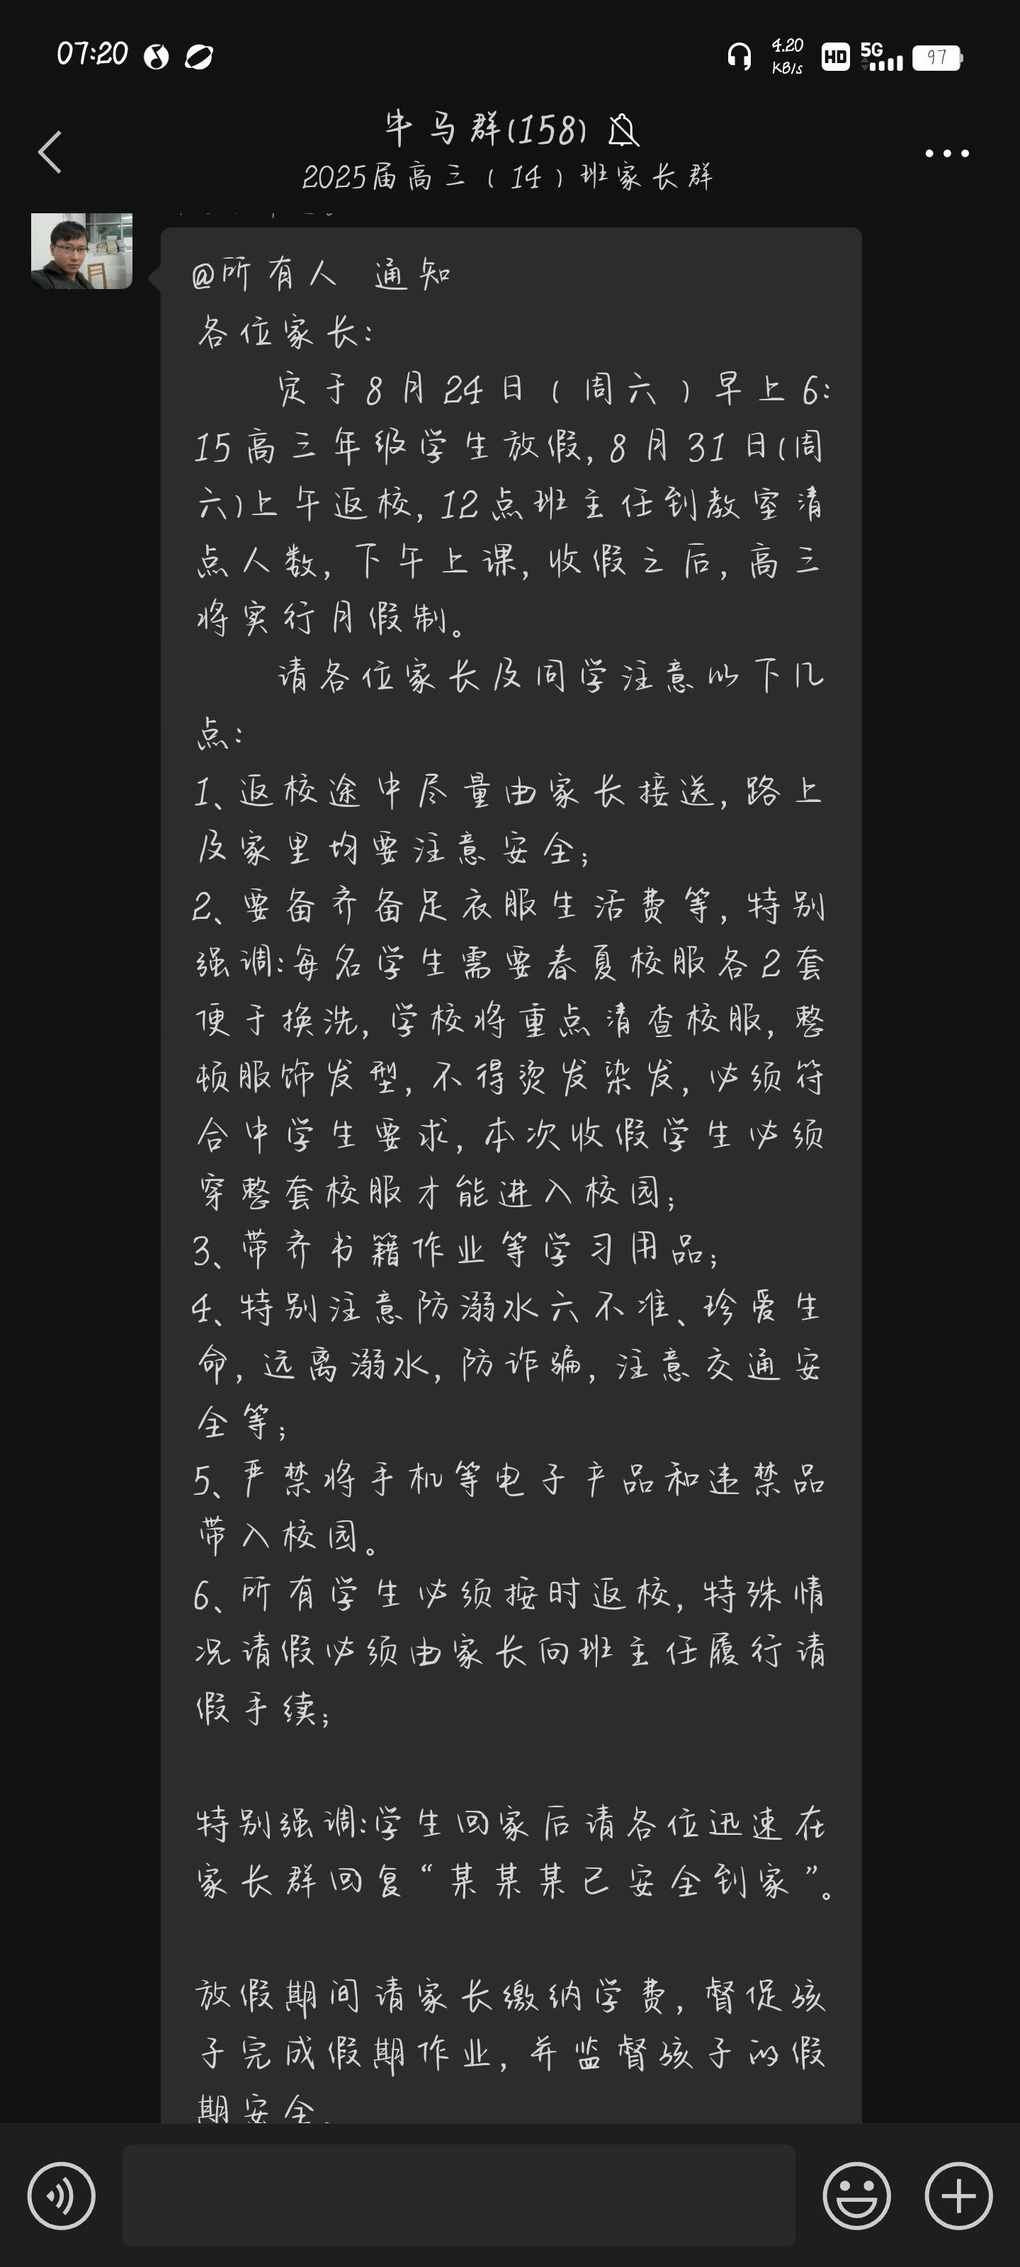 07:20
4.20
KB/s
HD
5G
97
牛马群(158)
2025届高三（14）班家长群
@所有人 通知
各位家长:
定于8月24日（周六）早上6:
15高三年级学生放假,8月31日(周
六)上午返校,12点班主任到教室清
点人数,下午上课,收假之后,高三
将实行月假制。
请各位家长及同学注意以下几
点:
1、返校途中尽量由家长接送,路上
及家里均要注意安全;
2、要备齐备足衣服生活费等,特别
强调:每名学生需要春夏校服各2套
便于换洗,学校将重点清查校服,整
顿服饰发型,不得烫发染发,必须符
合中学生要求,本次收假学生必须
穿整套校服才能进入校园;
3、带齐书籍作业等学习用品;
4、特别注意防溺水六不准、珍爱生
命,远离溺水,防诈骗,注意交通安
全等;
5、严禁将手机等电子产品和违禁品
带入校园。
6、所有学生必须按时返校,特殊情
况请假必须由家长向班主任履行请
假手续;
特别强调:学生回家后请各位迅速在
家长群回复“某某某已安全到家”。
放假期间请家长缴纳学费,督促孩
子完成假期作业,并监督孩子的假
期安全.